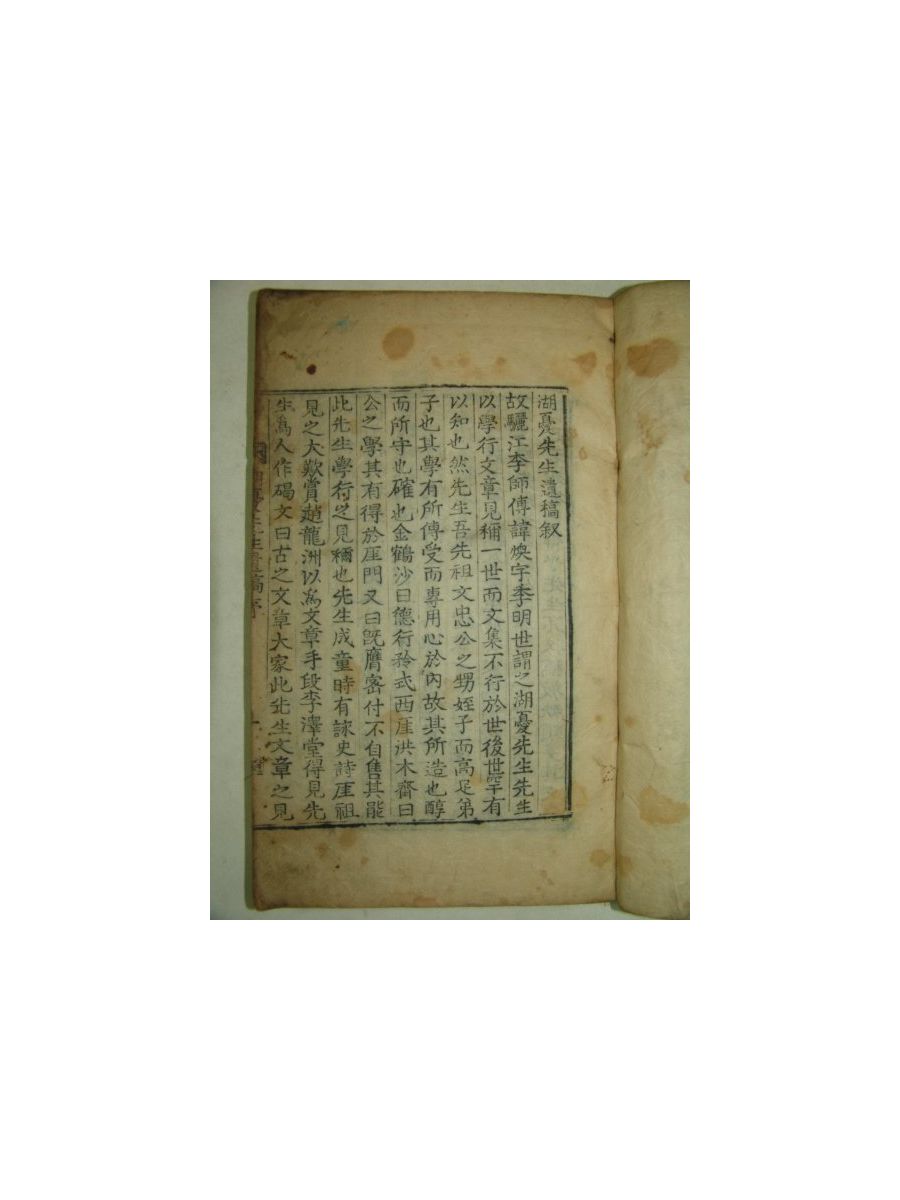 湖憂先生遺稿叙
故驪江李師傅諱煥字季明世謂之湖憂先生先生
以學行文章見稱一世而文集不行於世後世罕有
以知也然先生吾先祖文忠公之甥姪子而高足弟
子也其學有所傳受而專用心於內故其所造也醇
而所守也確也金鶴沙曰德行矜式西厓洪木齋曰
公之學其有得於厓門又曰旣膺密付不自售其能
此先生學行之見稱也先生成童時有詠史詩厓祖
見之大歎賞趙龍洲以爲文章手段李澤堂得見先
生爲人作碣文曰古之文章大家此先生文章之見
先生遺稿序